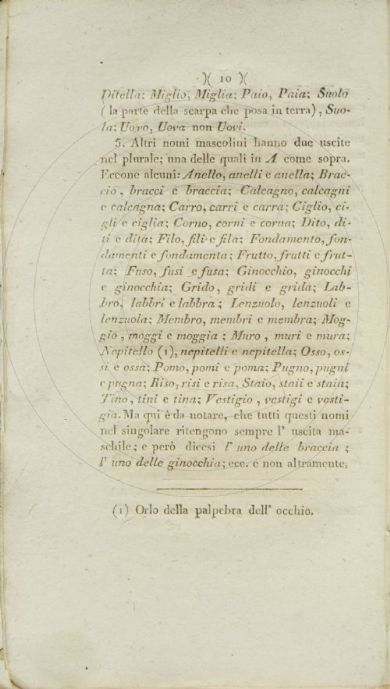 )( 10 )(
Ditella; Miglio, Miglia; Paio, Paia; Suolo
(la parte della scarpa che posa in terra), Suo-
la; Uovo, Uova non Uovi.
5. Altri nomi mascolini hanno due uscite
nel plurale; una delle quali in A come sopra.
Eccone alcuni: Anello, anelli e anella; Brac-
cio, bracci e braccia; Calcagno, calcagni
e calcagna; Carro, carri e carra; Ciglio, ci-
gli e ciglia; Corno, corni e corna; Dito, di-
ti e dita; Filo, fili e fila; Fondamento, fon-
damenti e fondamenta; Frutto, frutti e frut-
ta; Fuso, fusi e fusa; Ginocchio, ginocchi
e ginocchia; Grido, gridi e grida; Lab-
bro, labbri e labbra; Lenzuolo, lenzuoli e
lenzuola; Membro, membri e membra; Mog-
gio, moggi e moggia; Muro, muri e mura;
Nepitello (1), nepitelli e nepitella; Osso, os-
si e ossa; Pomo, pomi e poma; Pugno, pugni
e pugna; Riso, risi e risa, Staio, staii e staia;
Tino, tini e tina; Vestigio, vestigi e vesti-
gia. Ma quì è da notare, che tutti questi nomi
nel singolare ritengono sempre l' uscita ma-
schile; e però dicesi l' uno delle braccia;
l' uno delle ginocchia; ecc. e non altramente.
(1) Orlo della palpebra dell' occhio.